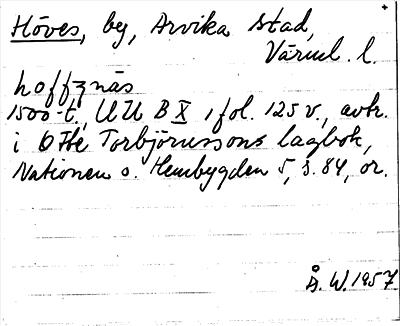 Höves, by, Arvika stad,
Värml. l.
hoffznäs
1500-t., UU B X, fol. 125 v., avtr.
i Otte Torbjörnssons lagbok,
Nationen o. Hembygden 5, s. 84, or.
Å. W. 1957